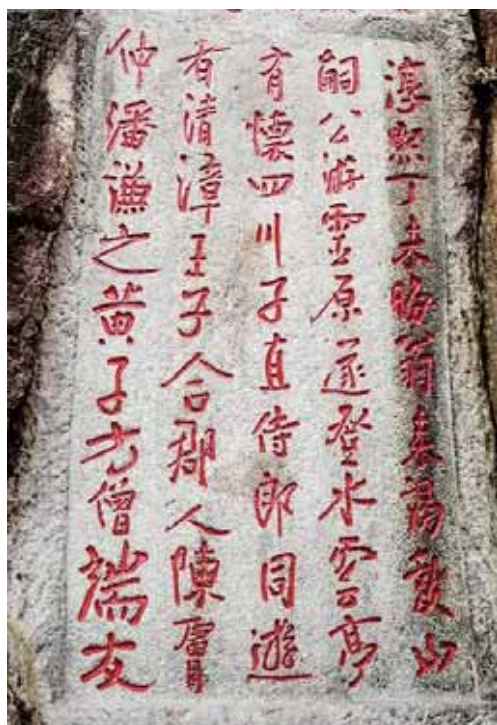 淳熙丁未晦翁来謁鼓山
嗣公游靈原遂登水雲亭
有懷四川子直侍郎同遊
者清漳王子合郡人陳膚
仲潘謙之黄子方僧端友